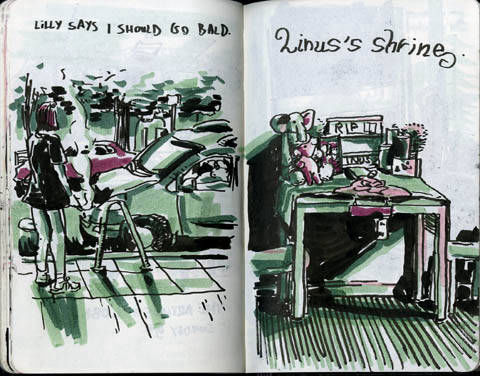 LILLY SAYS I SHOULD GO BALD.
Linus's shrine.
RIP
LINUS